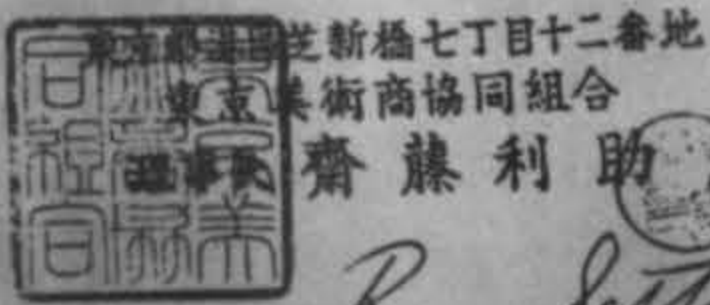 東京都港區芝新橋七丁目十二番地
東京美術商協同組合
理事長 齋藤利助